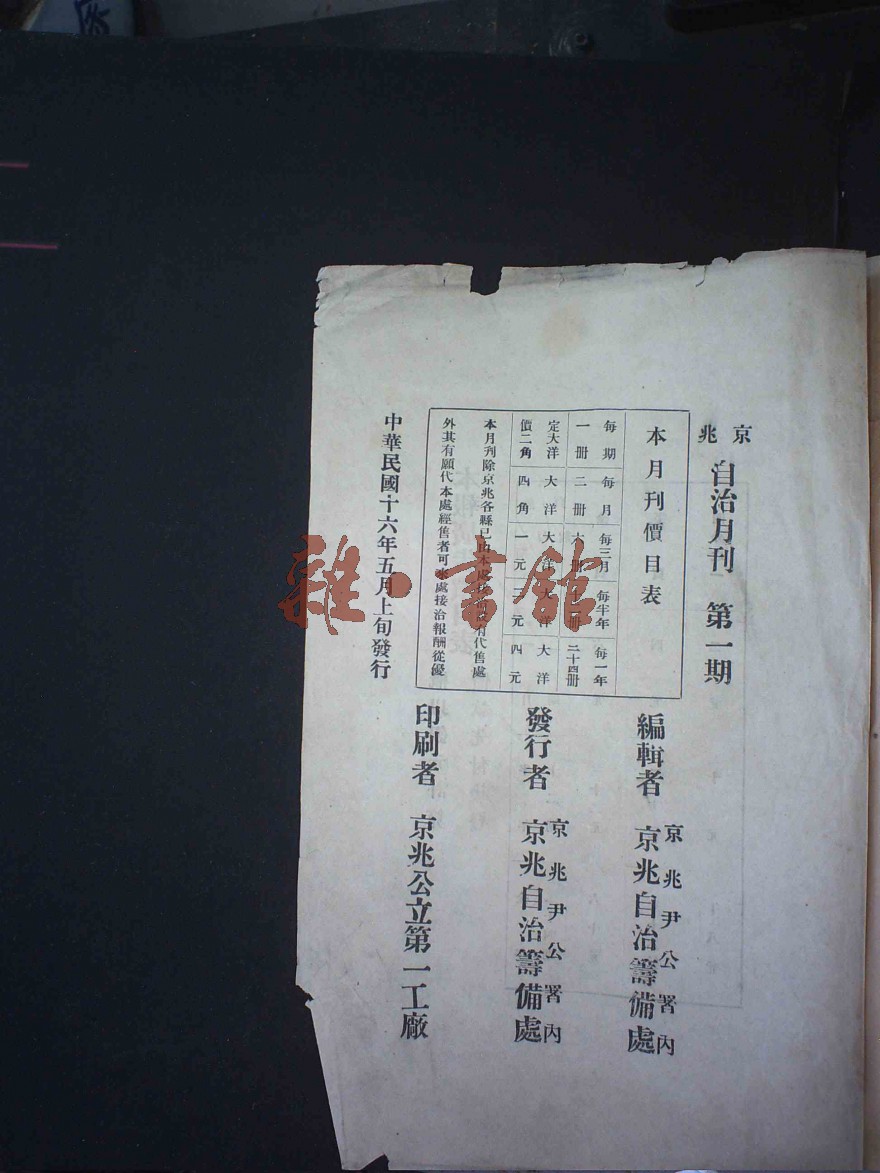 京兆
自治月刊　第一期
本月刊價目表
每期　每月　每三月　每半年　每一年
一冊　二冊　六冊　十二冊　二十四冊
定大洋　大洋　大洋　大洋　大洋
價二角　四角　一元　二元　四元
本月刊除京兆各縣已由本處　有代售處
外其有願代本處經售者可來處接洽報酬從優
中華民國十六年五月上旬發行
編輯者　京兆尹公署內京兆自治籌備處
發行者　京兆尹公署內京兆自治籌備處
印刷者　京兆公立第一工廠
雜·書館